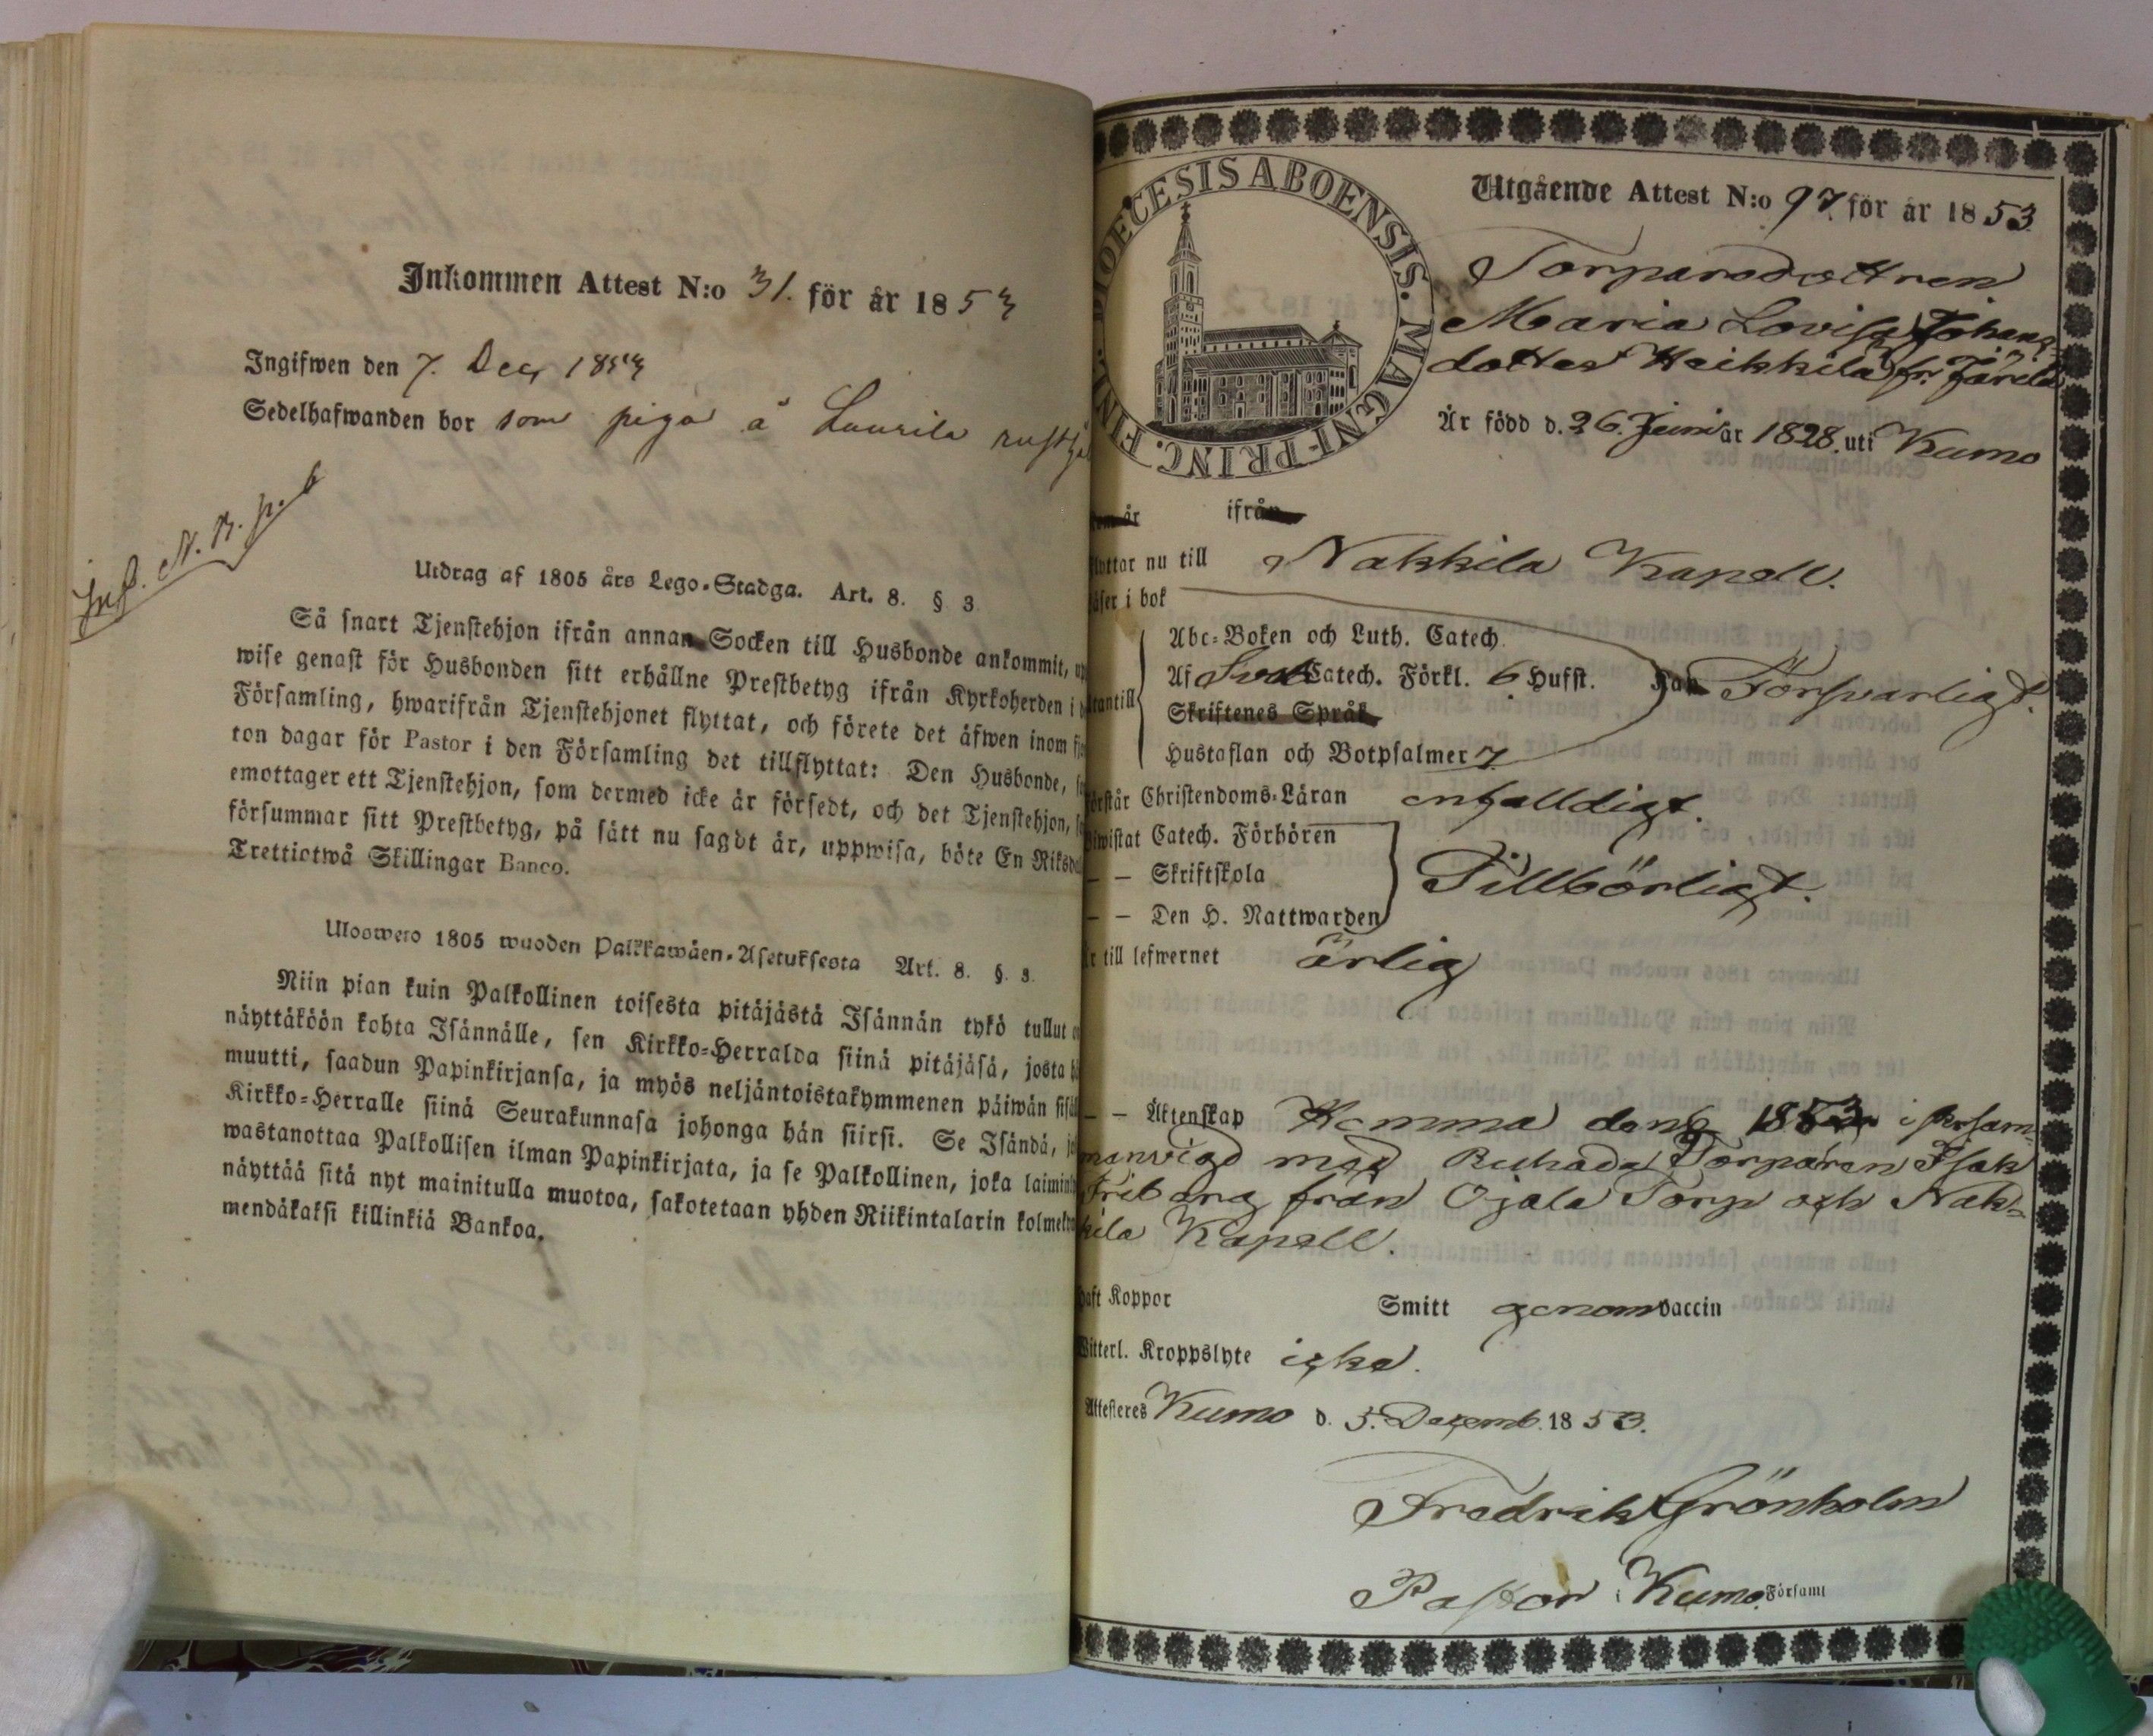 Inkommen Attest N:o 31. för år 1853
Ingifwen den 7. Dec. 1853
Sedelhafwanden bor som piga å Laurila
Inf. N. B. p. 6
Utdrag af 1805 års Lego-Stadga. Art. 8. § 3
Så snart Tjenstehjon ifrån annan Socken till Husbonde ankommit,
wise genast för Husbonden sitt erhållne Prestbetyg ifrån Kyrkoherden i
Församling, hwarifrån Tjenstehjonet flyttat, och förete det äfwen inom
ton dagar för Pastor i den Församling det tillflyttat: Den Husbonde,
emottager ett Tjenstehjon, som dermed icke är försedt, och det Tjenstehjon,
försummar sitt Prestbetyg, på sätt nu sagdt är, uppwisa, böte En
Trettiotwå Skillingar Banco.
Uloswero 1805 wuoden Palkkawäen-Asetuksesta Art. 8. §. 3.
Niin pian kuin Palkollinen toisesta pitäjästä Isännän tykö tullut
näyttäköön kohta Isännälle, sen Kirkko-Herralda siinä pitäjäsä, josta
muutti, saadun Papinkirjansa, ja myös neljäntoistakymmenen päiwän
Kirkko-Herralle siinä Seurakunnasa johonga hän siirsi. Se Isändä,
wastanottaa Palkollisen ilman Papinkirjata, ja se Palkollinen, joka
näyttää sitä nyt mainitulla muotoa, sakotetaan yhden Riikintalarin
mendäkaksi killinkiä Bankoa.
DIOECESIS ABOENSIS. MAGNI-PRINC. FINL.
Utgående Attest N:o 97 för år 1853.
Torparedottren
Maria Lovisa Johans-
dotter Heikkilä fr. Järilä
Är född d. 26. Juni år 1828. uti Kumo
år ifrån
flyttar nu till Nakkila Kapell.
läser i bok
Abc-Boken och Luth. Catech.
utantill Af Sveb Catech. Förkl. 6 Hufst. Försvarligt.
Skriftenes Språk
Hustaflan och Botpsalmer 7.
förstår Christendoms-Läran enfalldigt.
Biwistat Catech. Förhören
— — Skriftskola Tillbörligt.
— — Den H. Nattwarden
Är till lefwernet ärlig
— — Äktenskap Hemma den 6 1853 i
manvigd med Torparen Isak
från Ojala Torp och Nak-
kila Kapell.
Haft Koppor Smitt genom vaccin
Witterl. Kroppslyte icke.
Attesteres Kumo d. 5. Decemb. 1853.
Fredrik Grönholm
Pastor i Kumo Församl